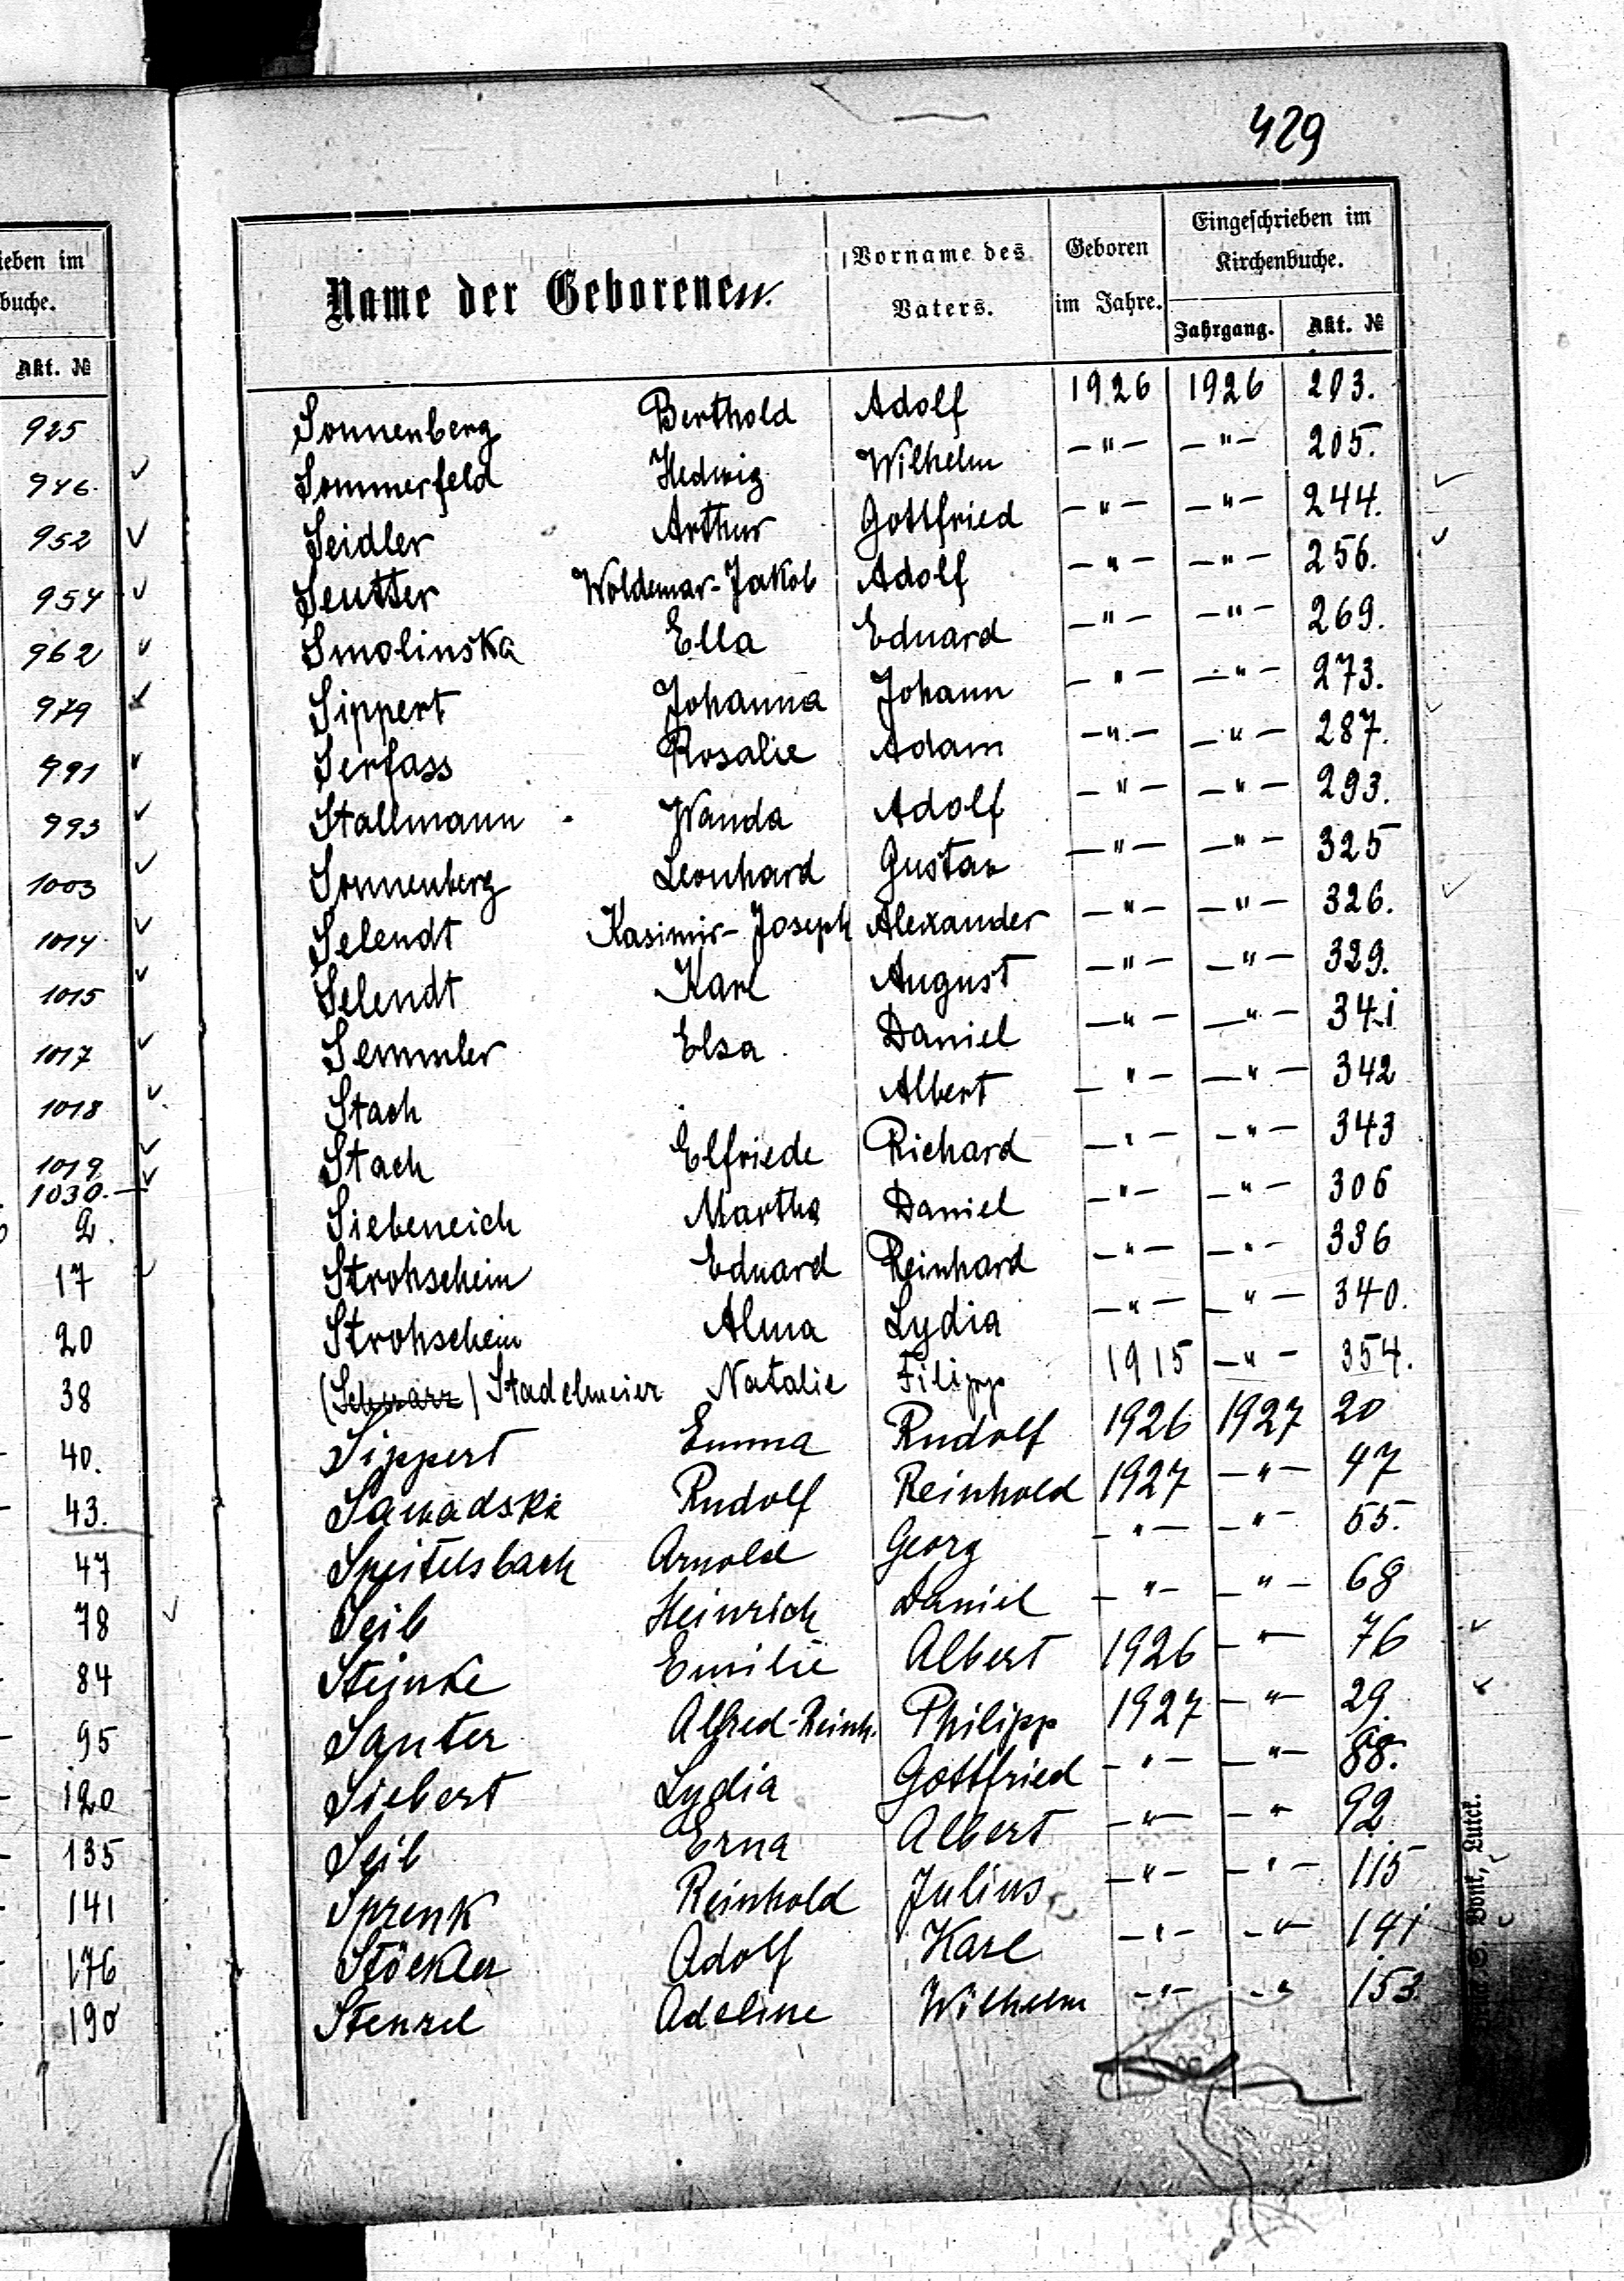 ieben im
buche.
Akt. №
925
946.
952
954
962
979
991
993
1003
1014
1015
1017
1018
1019
1030.—
2.
17
20
38
40.
43.
47
78
84
95
120
135
141
176
190
429
Name der Geborenen.
Vorname des Vaters.
Geboren im Jahre.
Eingeschrieben im Kirchenbuche.
Jahrgang. Akt. №
Sonnenberg Berthold Adolf 1926 1926 203.
Sommerfeld Hedwig Wilhelm —"— —"— 205.
Seidler Arthur Gottfried —"— —"— 244.
Seutter Woldemar-Jakob Adolf —"— —"— 256.
Smolinska Ella Eduard —"— —"— 269.
Sippert Johanna Johann —"— —"— 273.
Serfass Rosalie Adam —"— —"— 287.
Stallmann Wanda Adolf —"— —"— 293.
Sonnenberg Leonhard Gustav —"— —"— 325
Selendt Kasimir-Joseph Alexander —"— —"— 326.
Selendt Karl August —"— —"— 329.
Semmler Elsa Daniel —"— —"— 341
Stach Albert —"— —"— 342
Stach Elfriede Richard —"— —"— 343
Siebeneich Martha Daniel —"— —"— 306
Strohschein Eduard Reinhard —"— —"— 336
Strohschein Alma Lydia —"— —"— 340.
(Schwarz) Stadelmeier Natalie Filipp 1915 —"— 354.
Sippert Emma Rudolf 1926 1927 20
Sawadski Rudolf Reinhold 1927 —"— 47
Speitelsbach Arnold Georg —"— —"— 55.
Seib Heinrich Daniel —"— —"— 68
Steinke Emilie Albert 1926 —"— 76
Sauter Alfred-Reinh. Philipp 1927 —"— 29.
Siebert Lydia Gottfried —"— —"— 88.
Seib Erna Albert —"— —"— 92
Sprenk Reinhold Julius —"— —"— 115
Stöckler Adolf Karl —"— —"— 141
Stenzel Adeline Wilhelm —"— —"— 153.
Luck.